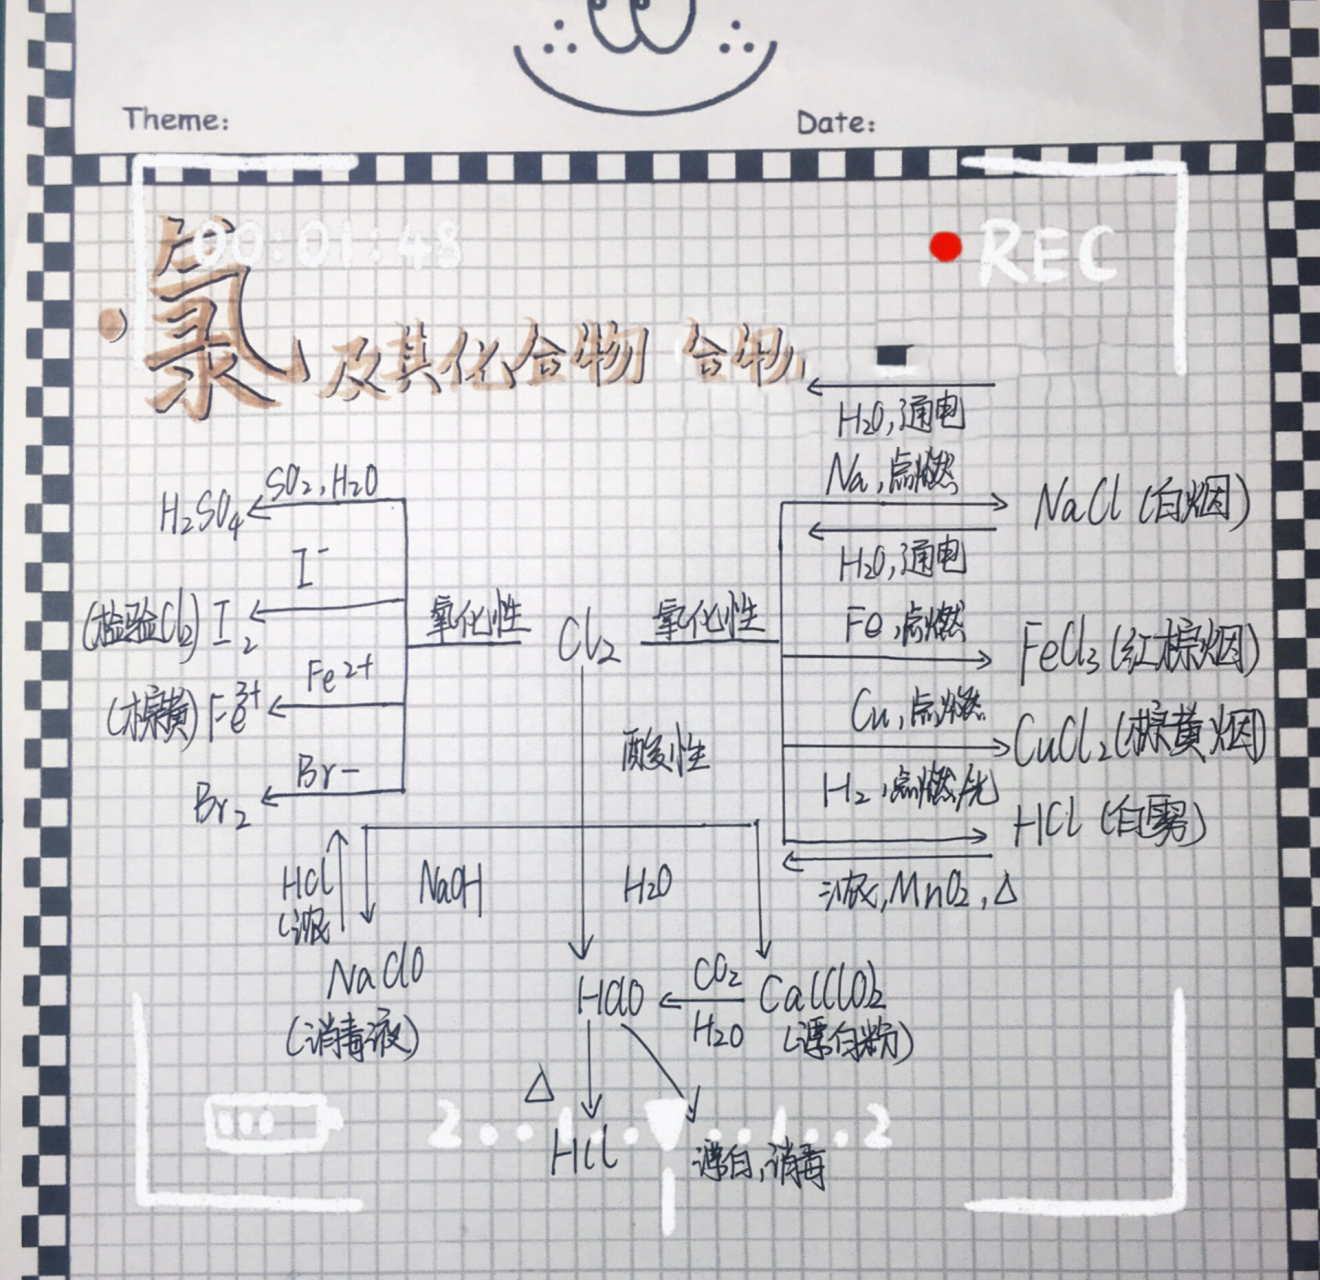 Theme:
Date:
00:01:48
REC
氯及其化合物 合物
H₂O,通电
Na,点燃
NaCl (白烟)
H₂O,通电
SO₂,H₂O
H₂SO₄
I⁻
(检验Cl₂) I₂
氧化性
Cl₂
氧化性
Fe,点燃
FeCl₃(红棕烟)
Fe²⁺
(棕黄) Fe³⁺
Cu,点燃
CuCl₂(棕黄烟)
酸性
Br-
Br₂
H₂,点燃/光
HCl (白雾)
HCl
(浓
NaOH
H₂O
浓,MnO₂,△
NaClO
(消毒液)
HClO
CO₂
H₂O
Ca(ClO)₂
(漂白粉)
△
2 . . 1 . . . . 1 . . 2
HCl
漂白,消毒